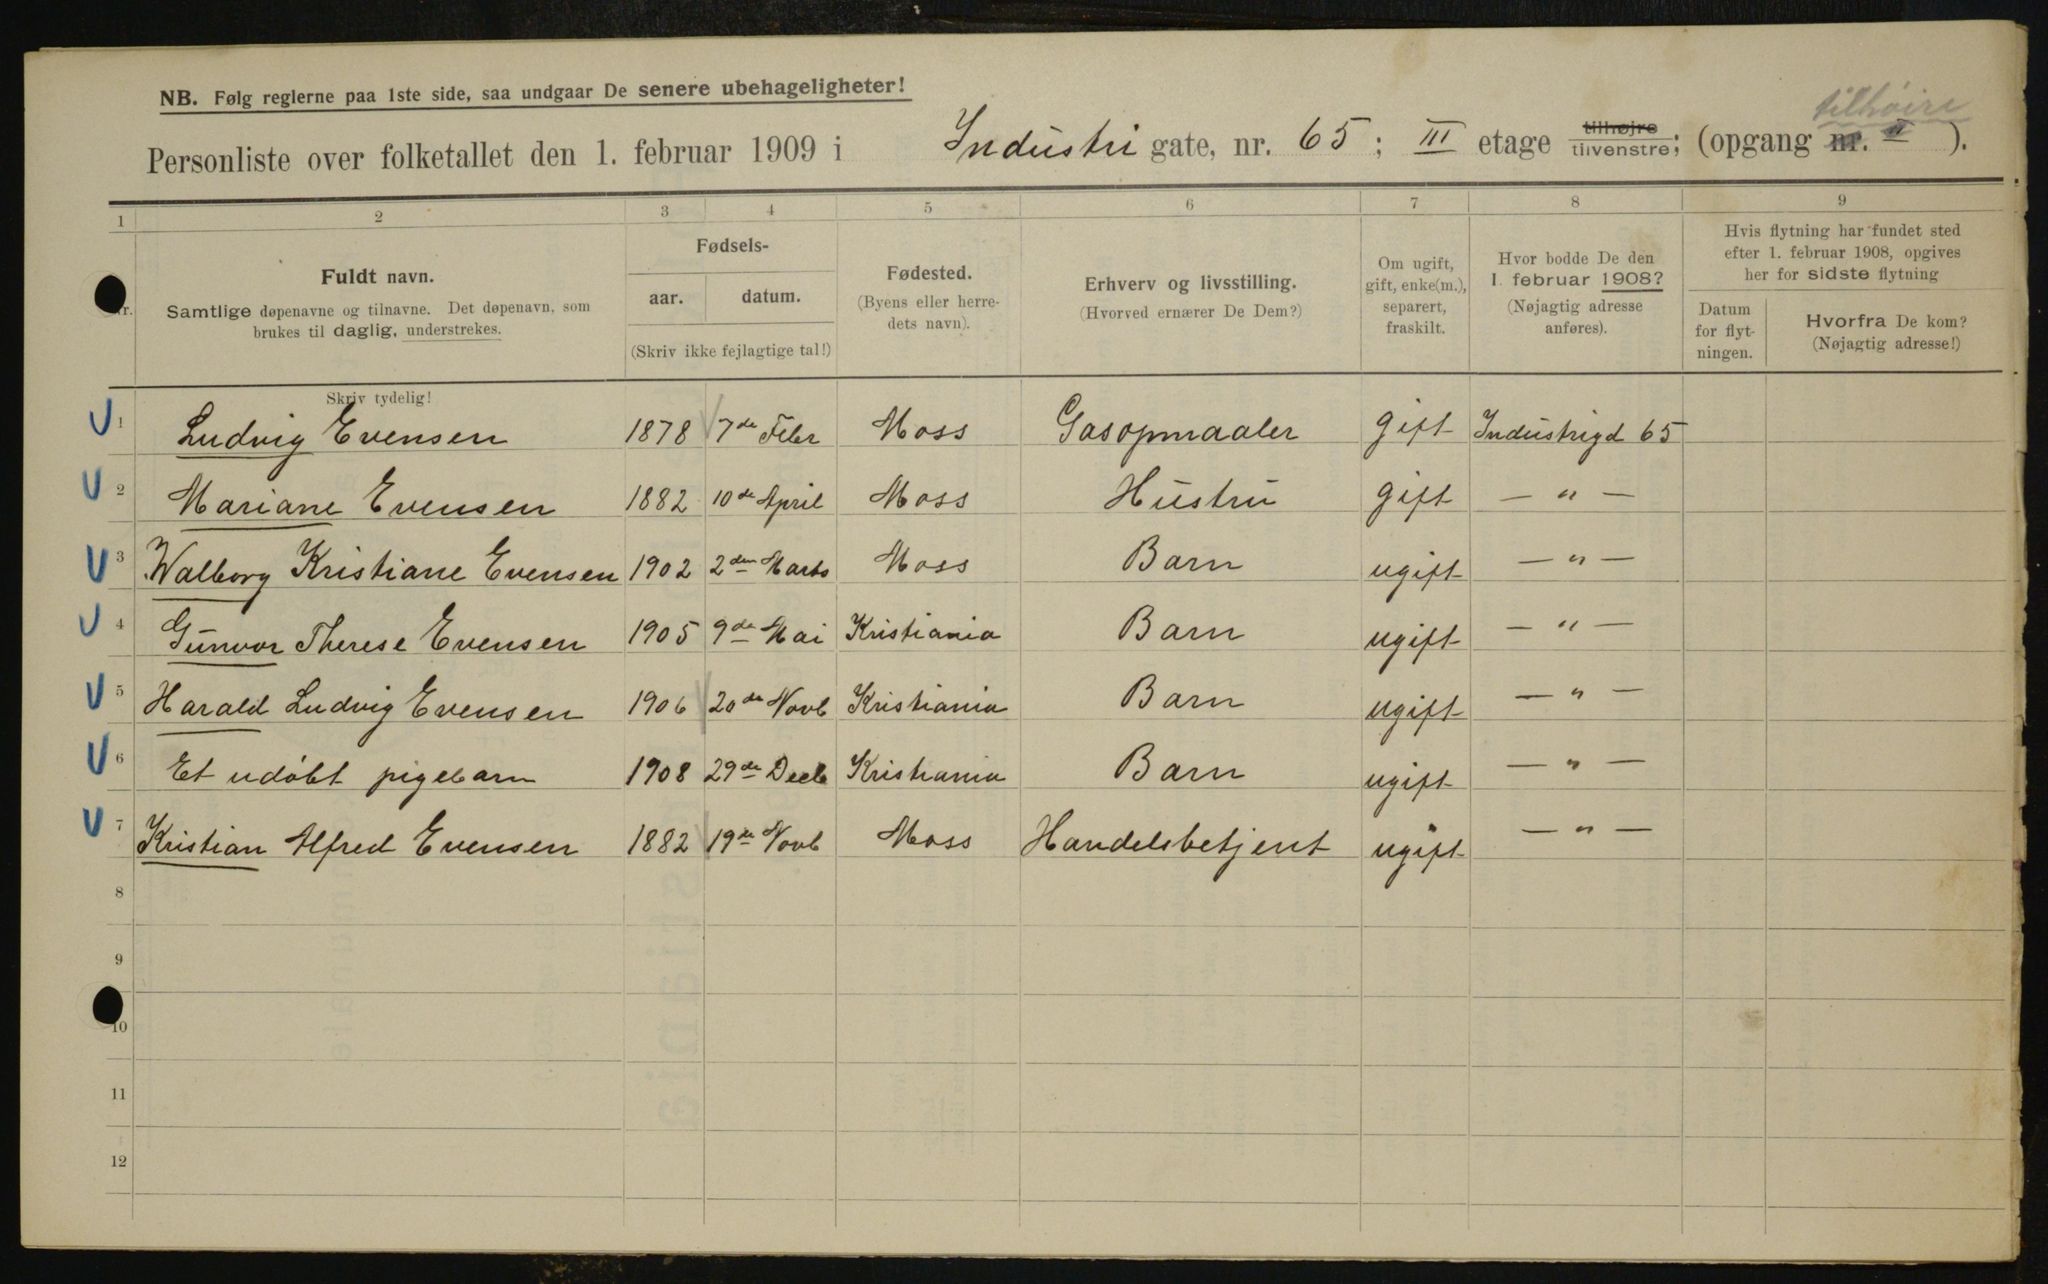 NB. Følg reglerne paa 1ste side, saa undgaar De senere ubehageligheter!
tilhøire
Personliste over folketallet den 1. februar 1909 i Industri gate, nr. 65; III etage tilhøjre tilvenstre; (opgang nr. II ).
1 2 3 4 5 6 7 8 9
Nr.
Fuldt navn.
Samtlige døpenavne og tilnavne. Det døpenavn, som
brukes til daglig, understrekes.
Skriv tydelig!
Fødsels-
aar. datum.
(Skriv ikke fejlagtige tal!)
Fødested.
(Byens eller herre-
dets navn).
Erhverv og livsstilling.
(Hvorved ernærer De Dem?)
Om ugift,
gift, enke(m.),
separert,
fraskilt.
Hvor bodde De den
1. februar 1908?
(Nøjagtig adresse
anføres).
Hvis flytning har fundet sted
efter 1. februar 1908, opgives
her for sidste flytning
Datum
for flyt-
ningen.
Hvorfra De kom?
(Nøjagtig adresse!)
1 Ludvig Evensen 1878 7de Febr Moss Gasopmaaler gift Industrigd 65
2 Mariane Evensen 1882 10de April Moss Hustru gift — " —
3 Walborg Kristiane Evensen 1902 2den Marts Moss Barn ugift — " —
4 Gunvor Therese Evensen 1905 9de Mai Kristiania Barn ugift — " —
5 Harald Ludvig Evensen 1906 20de Novb Kristiania Barn ugift — " —
6 Et udöbt pigebarn 1908 29de Decb Kristiania Barn ugift — " —
7 Kristian Alfred Evensen 1882 19de Novb Moss Handelsbetjent ugift — " —
8
9
10
11
12